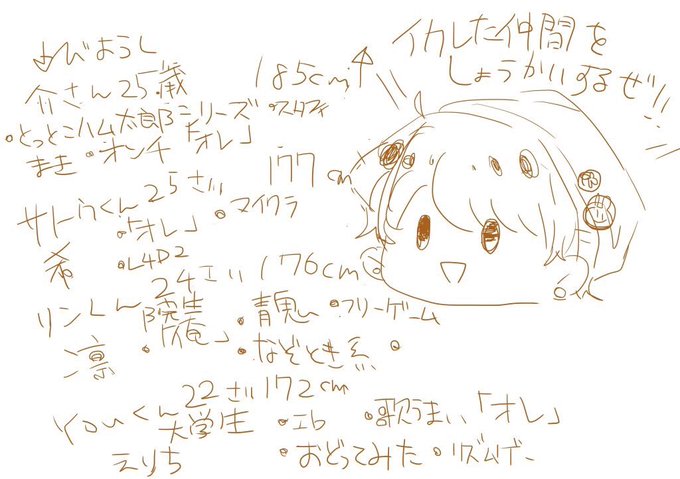 イカした仲間を
しょうかいするぜ!!
介さん25歳 185cm↑
・とっとこハム太郎シリーズ
まき ・オンチ「オレ」
サトウくん 25さい 177cm
・「オレ」 ・マイクラ
希 ・L4D2
リンくん 24さい 176cm
「俺」 ・青鬼 ・フリーゲーム
凛 ・なぞとき系 ・
Youくん 22さい 172cm
大学生 ・Ib ・歌うまい「オレ」
えりち ・おどってみた ・リズムゲー